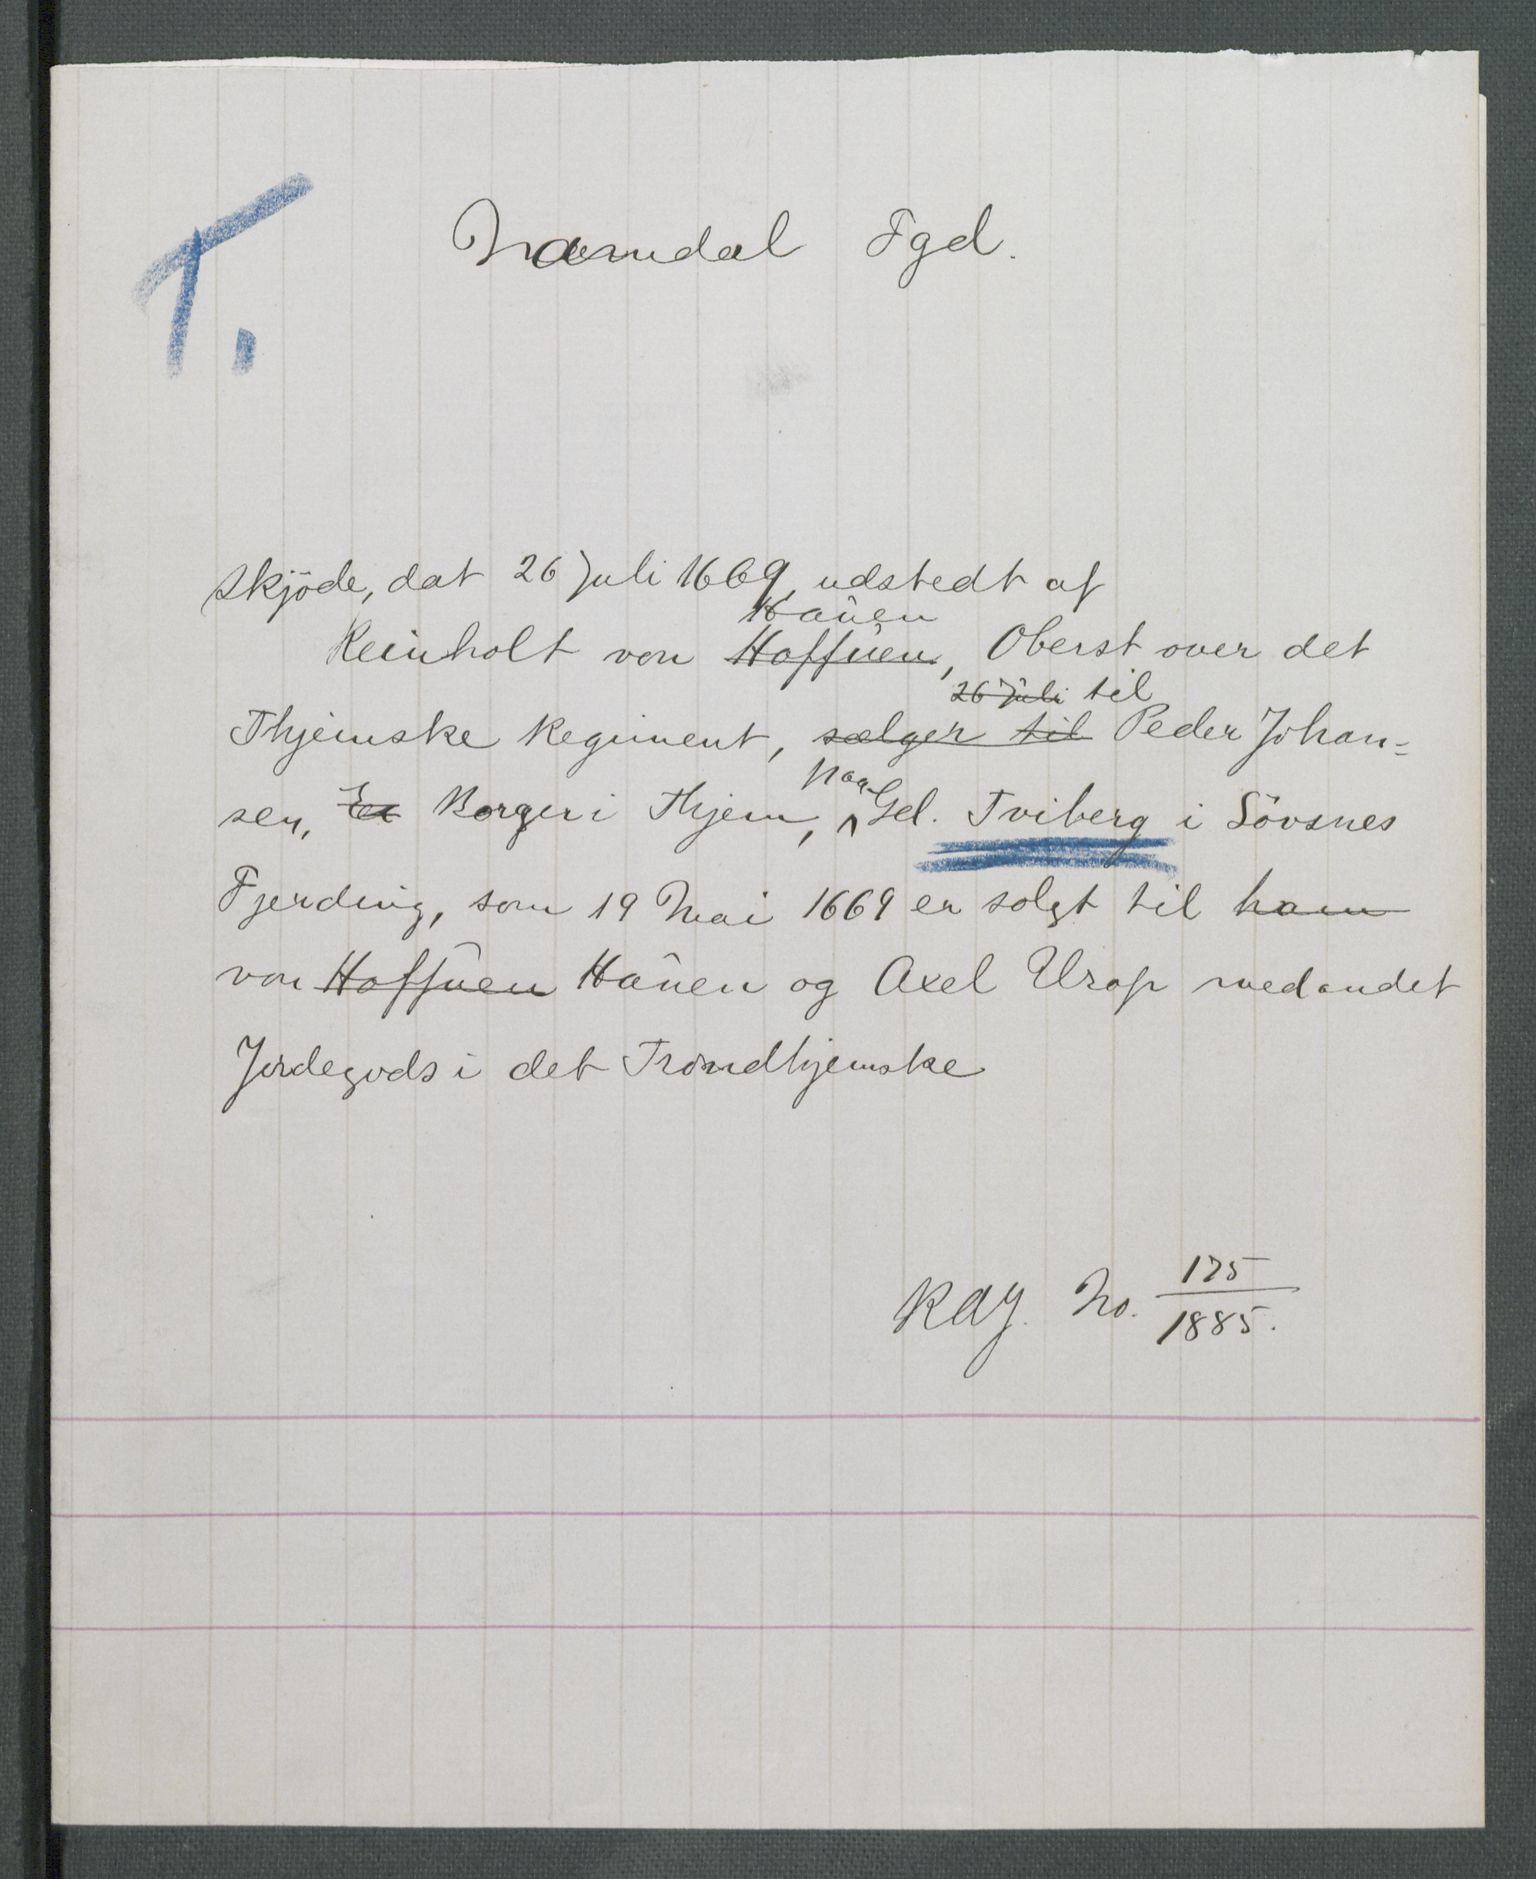 T.
Namdal Fgd.
Skjöde, dat 26 Juli 1669, udstedt af
Haûen
Reinholt von Hoffûen, Oberst over det
26 Juli til
Thjemske Regiment, sælger til Peder Johan=
sen, Borger i Thjem, paa Gd. Tviberg i Sövsnes
Fjerding, som 19 Mai 1669 er solgt til ham
von Hoffûen Haûen og Axel Urop med andet
Jordegods i det Trondhjemske
RAY. No. 175
1885.